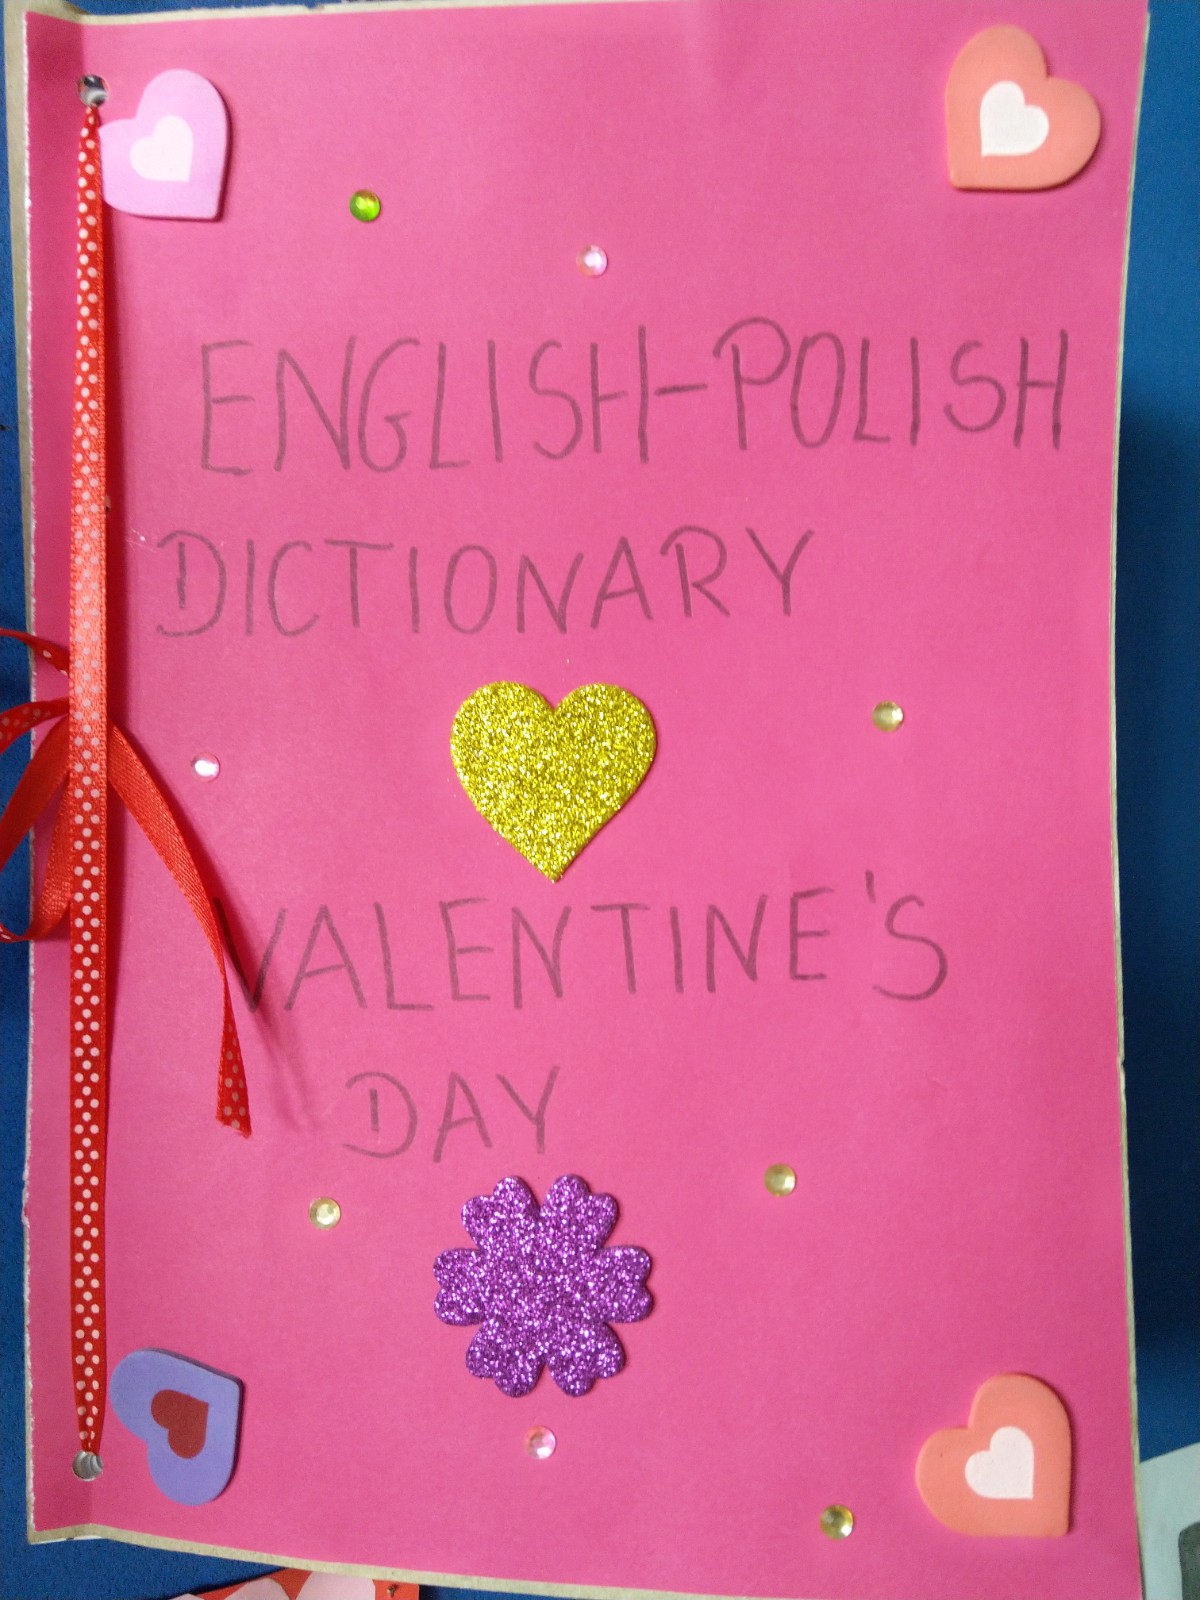 ENGLISH-POLISH
DICTIONARY
VALENTINE'S
DAY